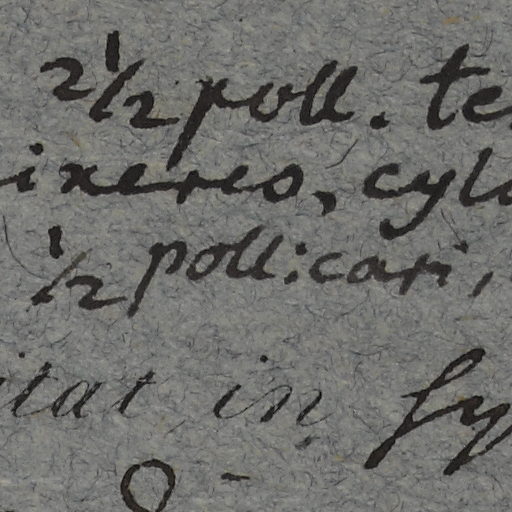 2 1/2 poll. te
ixereo, cyl
1/2 pollicari,
itat in Sy